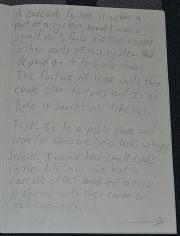 A cascade failure is when a
part of a system, sometimes a
small part, fails and this causes
other parts of this system that
depend on it to break down.
The failure of those parts then
cause other failures and so on
Life is sometimes like this
First: Go to a public place and
look for someone who looks unhappy
Second: Imagine how small events
in their life may have had a
cascade effect and led to major
problems with their career or
relationship